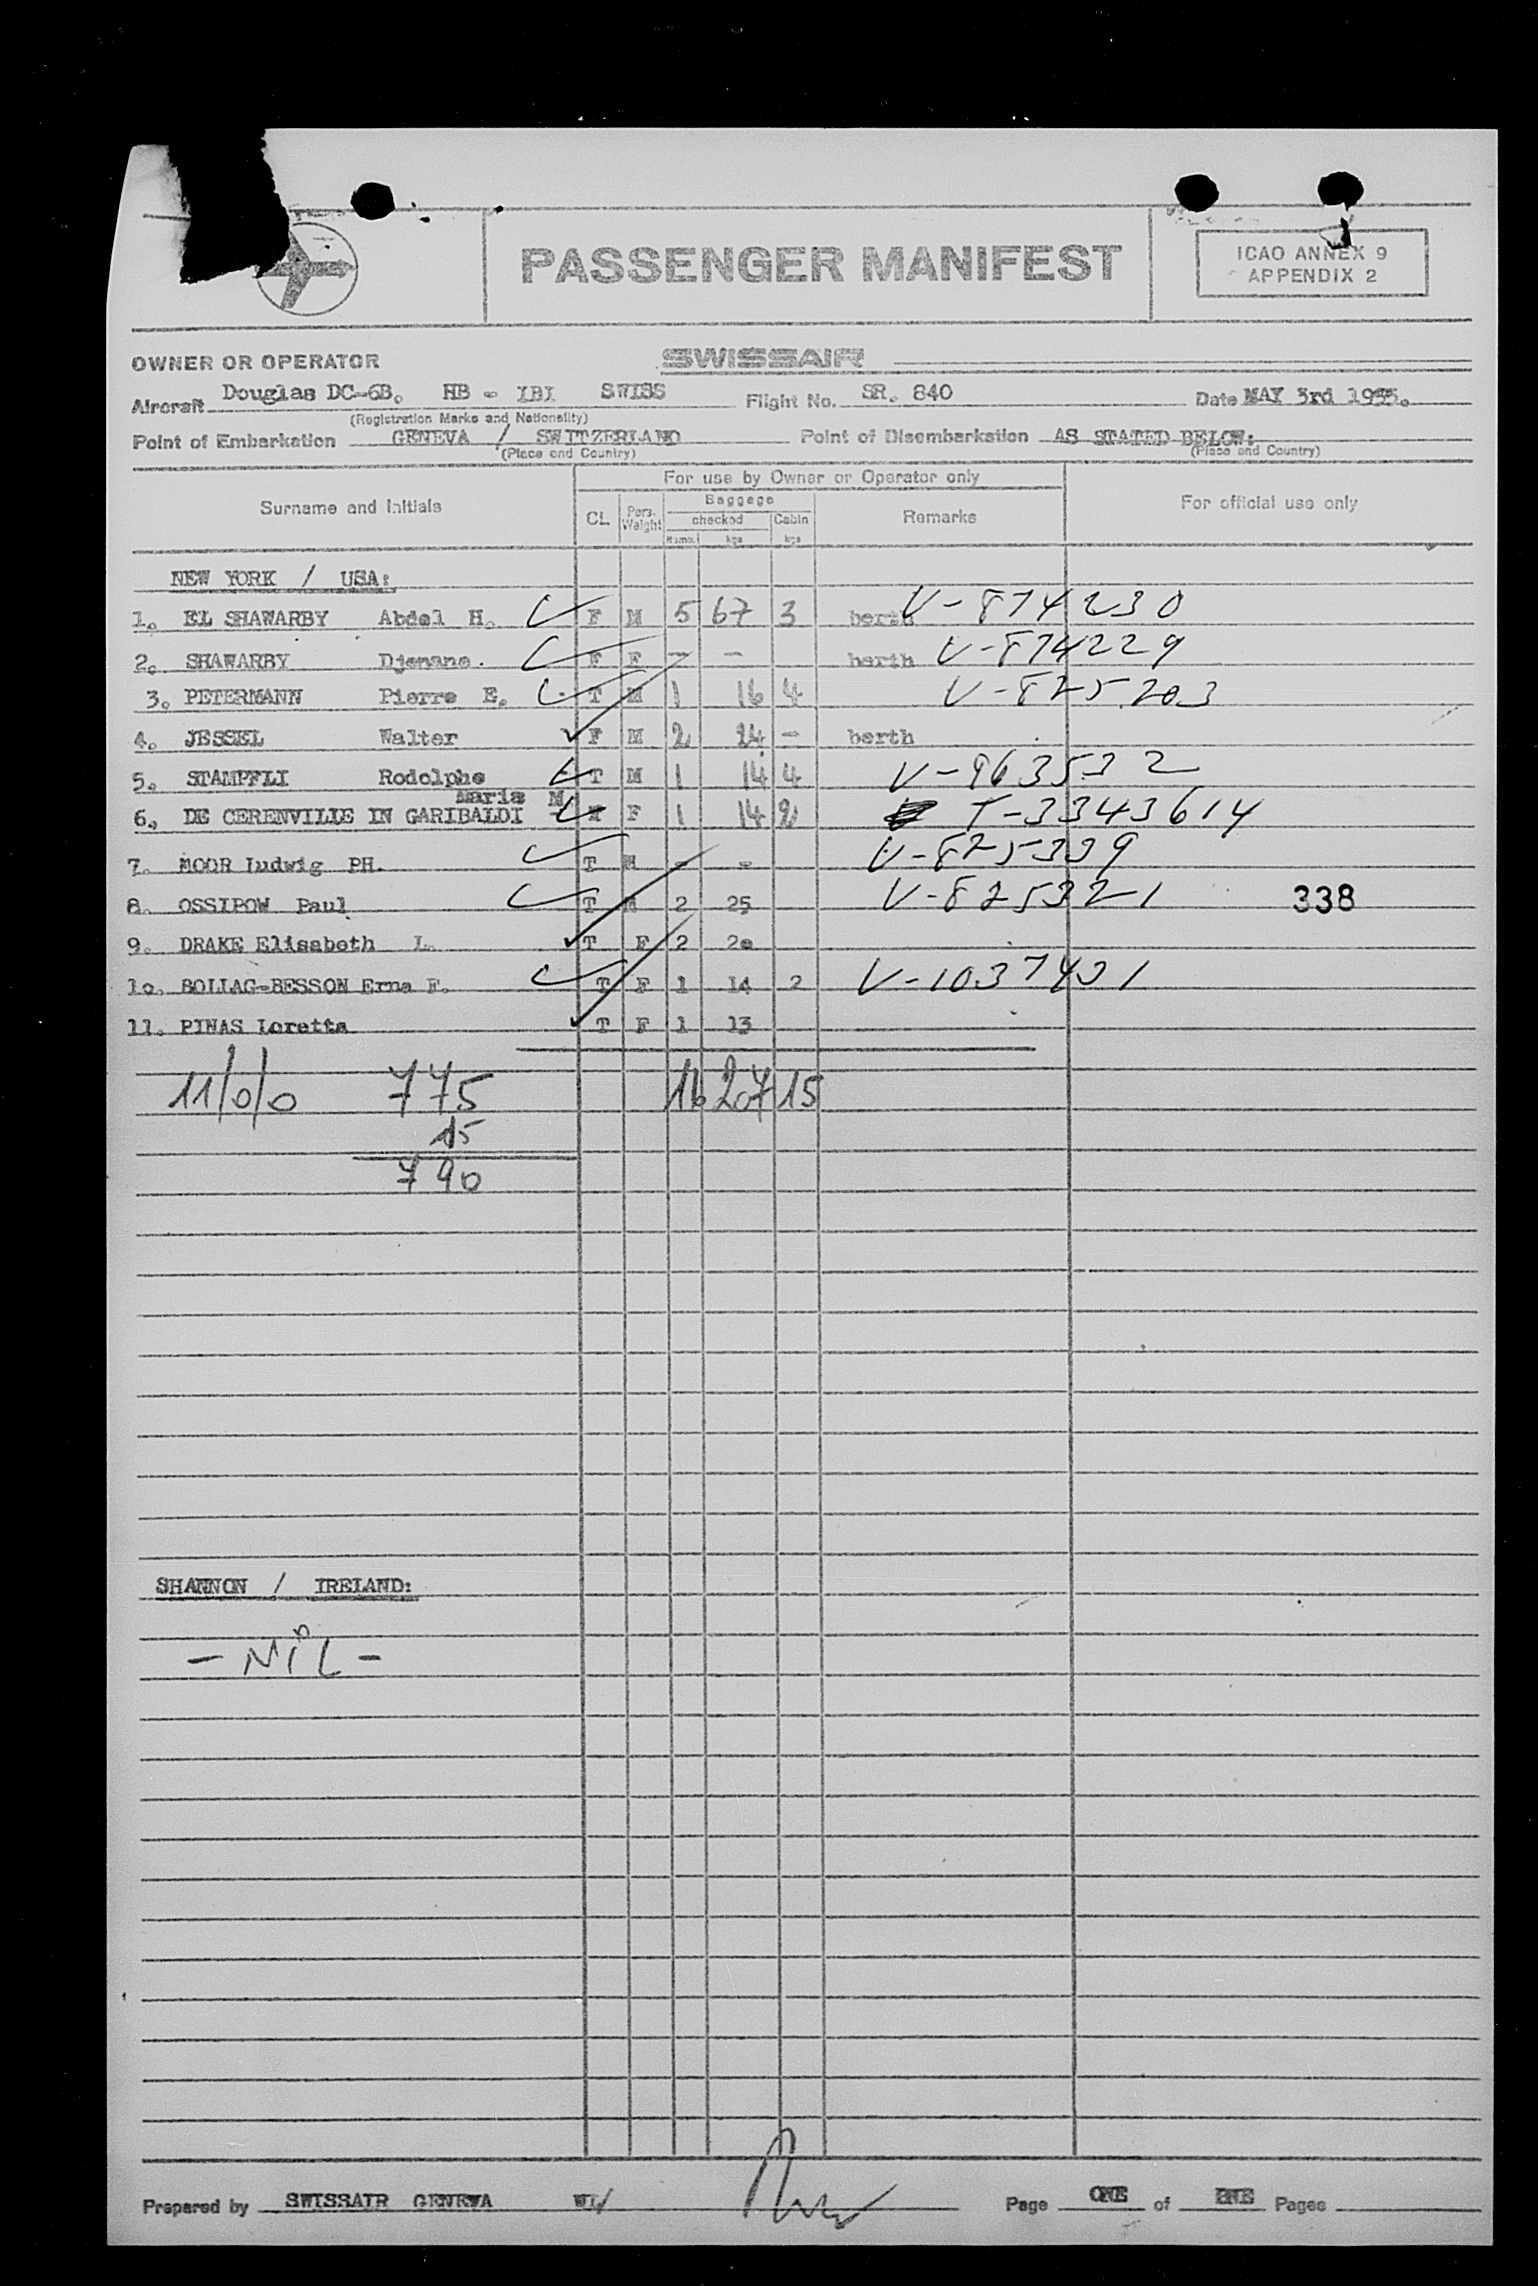 PASSENGER MANIFEST
ICAO ANNEX 9
APPENDIX 2
OWNER OR OPERATOR SWISSAIR
Aircraft Douglas DC-6B. HB - IBI SWISS Flight No. SR. 840 Date MAY 3rd 1955.
(Registration Marks and Nationality)
Point of Embarkation GENEVA / SWITZERLAND Point of Disembarkation AS STATED BELOW:
(Place and Country) (Place and Country)
For use by Owner or Operator only
Surname and Initials CL. Pers. Weight Baggage Remarks For official use only
checked Cabin
Numb. kgs kgs
NEW YORK / USA:
1. EL SHAWARBY Abdel H. F M 5 67 3 berth V-874230
2. SHAWARBY Djenane. F F - - berth V-874229
3. PETERMANN Pierre E. T M 1 16 4 V-825203
4. JESSEL Walter F M 2 24 - berth
5. STAMPFLI Rodolphe T M 1 14 4 V-963532
Maria M.
6. DE CERENVILLE IN GARIBALDI F 1 14 2 T-3343614
7. MOOR Ludwig PH. T M - - V-825339
8. OSSIPOW Paul T M 2 25 V-825321 338
9. DRAKE Elisabeth L. T F 2 2o
1o. BOLLAG-BESSON Erna F. T F 1 14 2 V-1037431
11. PINAS Loretta T F 1 13
11/0/0 775 16 207 15
15
790
SHANNON / IRELAND:
- NIL -
Prepared by SWISSAIR GENEVA WL/ Page ONE of ONE Pages